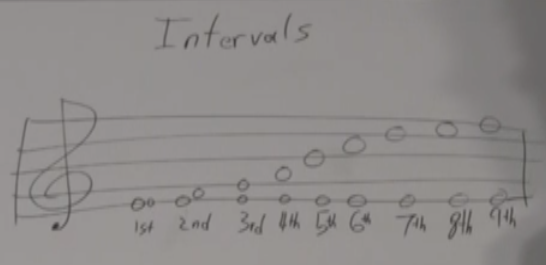 Intervals
1st 2nd 3rd 4th 5th 6th 7th 8th 9th